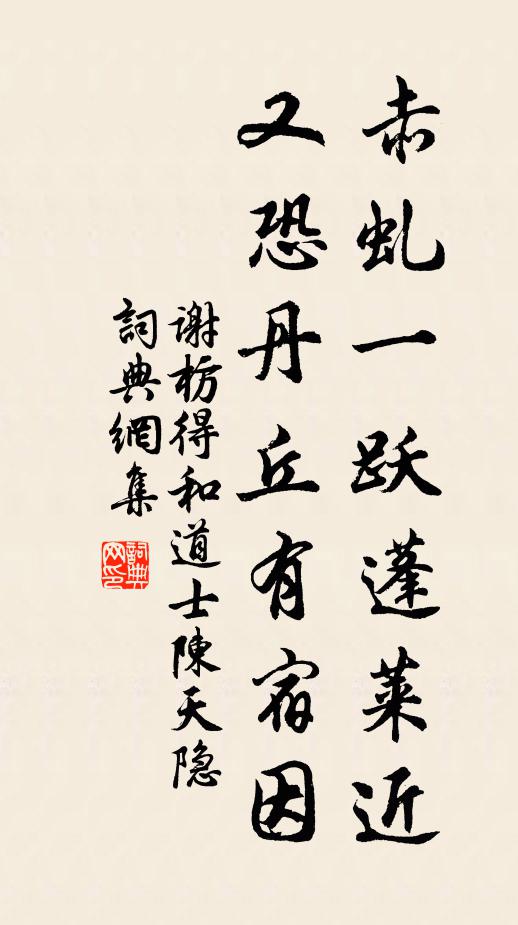 赤虬一跃蓬莱近
又恐丹丘有宿因
谢枋得和道士陳天隐
詞典網集
詞典网印